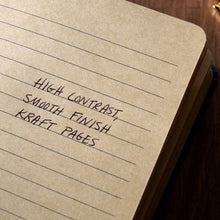 HIGH CONTRAST,
SMOOTH FINISH
KRAFT PAGES